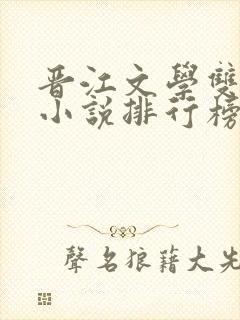 晋江文學雙
小說排行榜
聲名狼藉大先